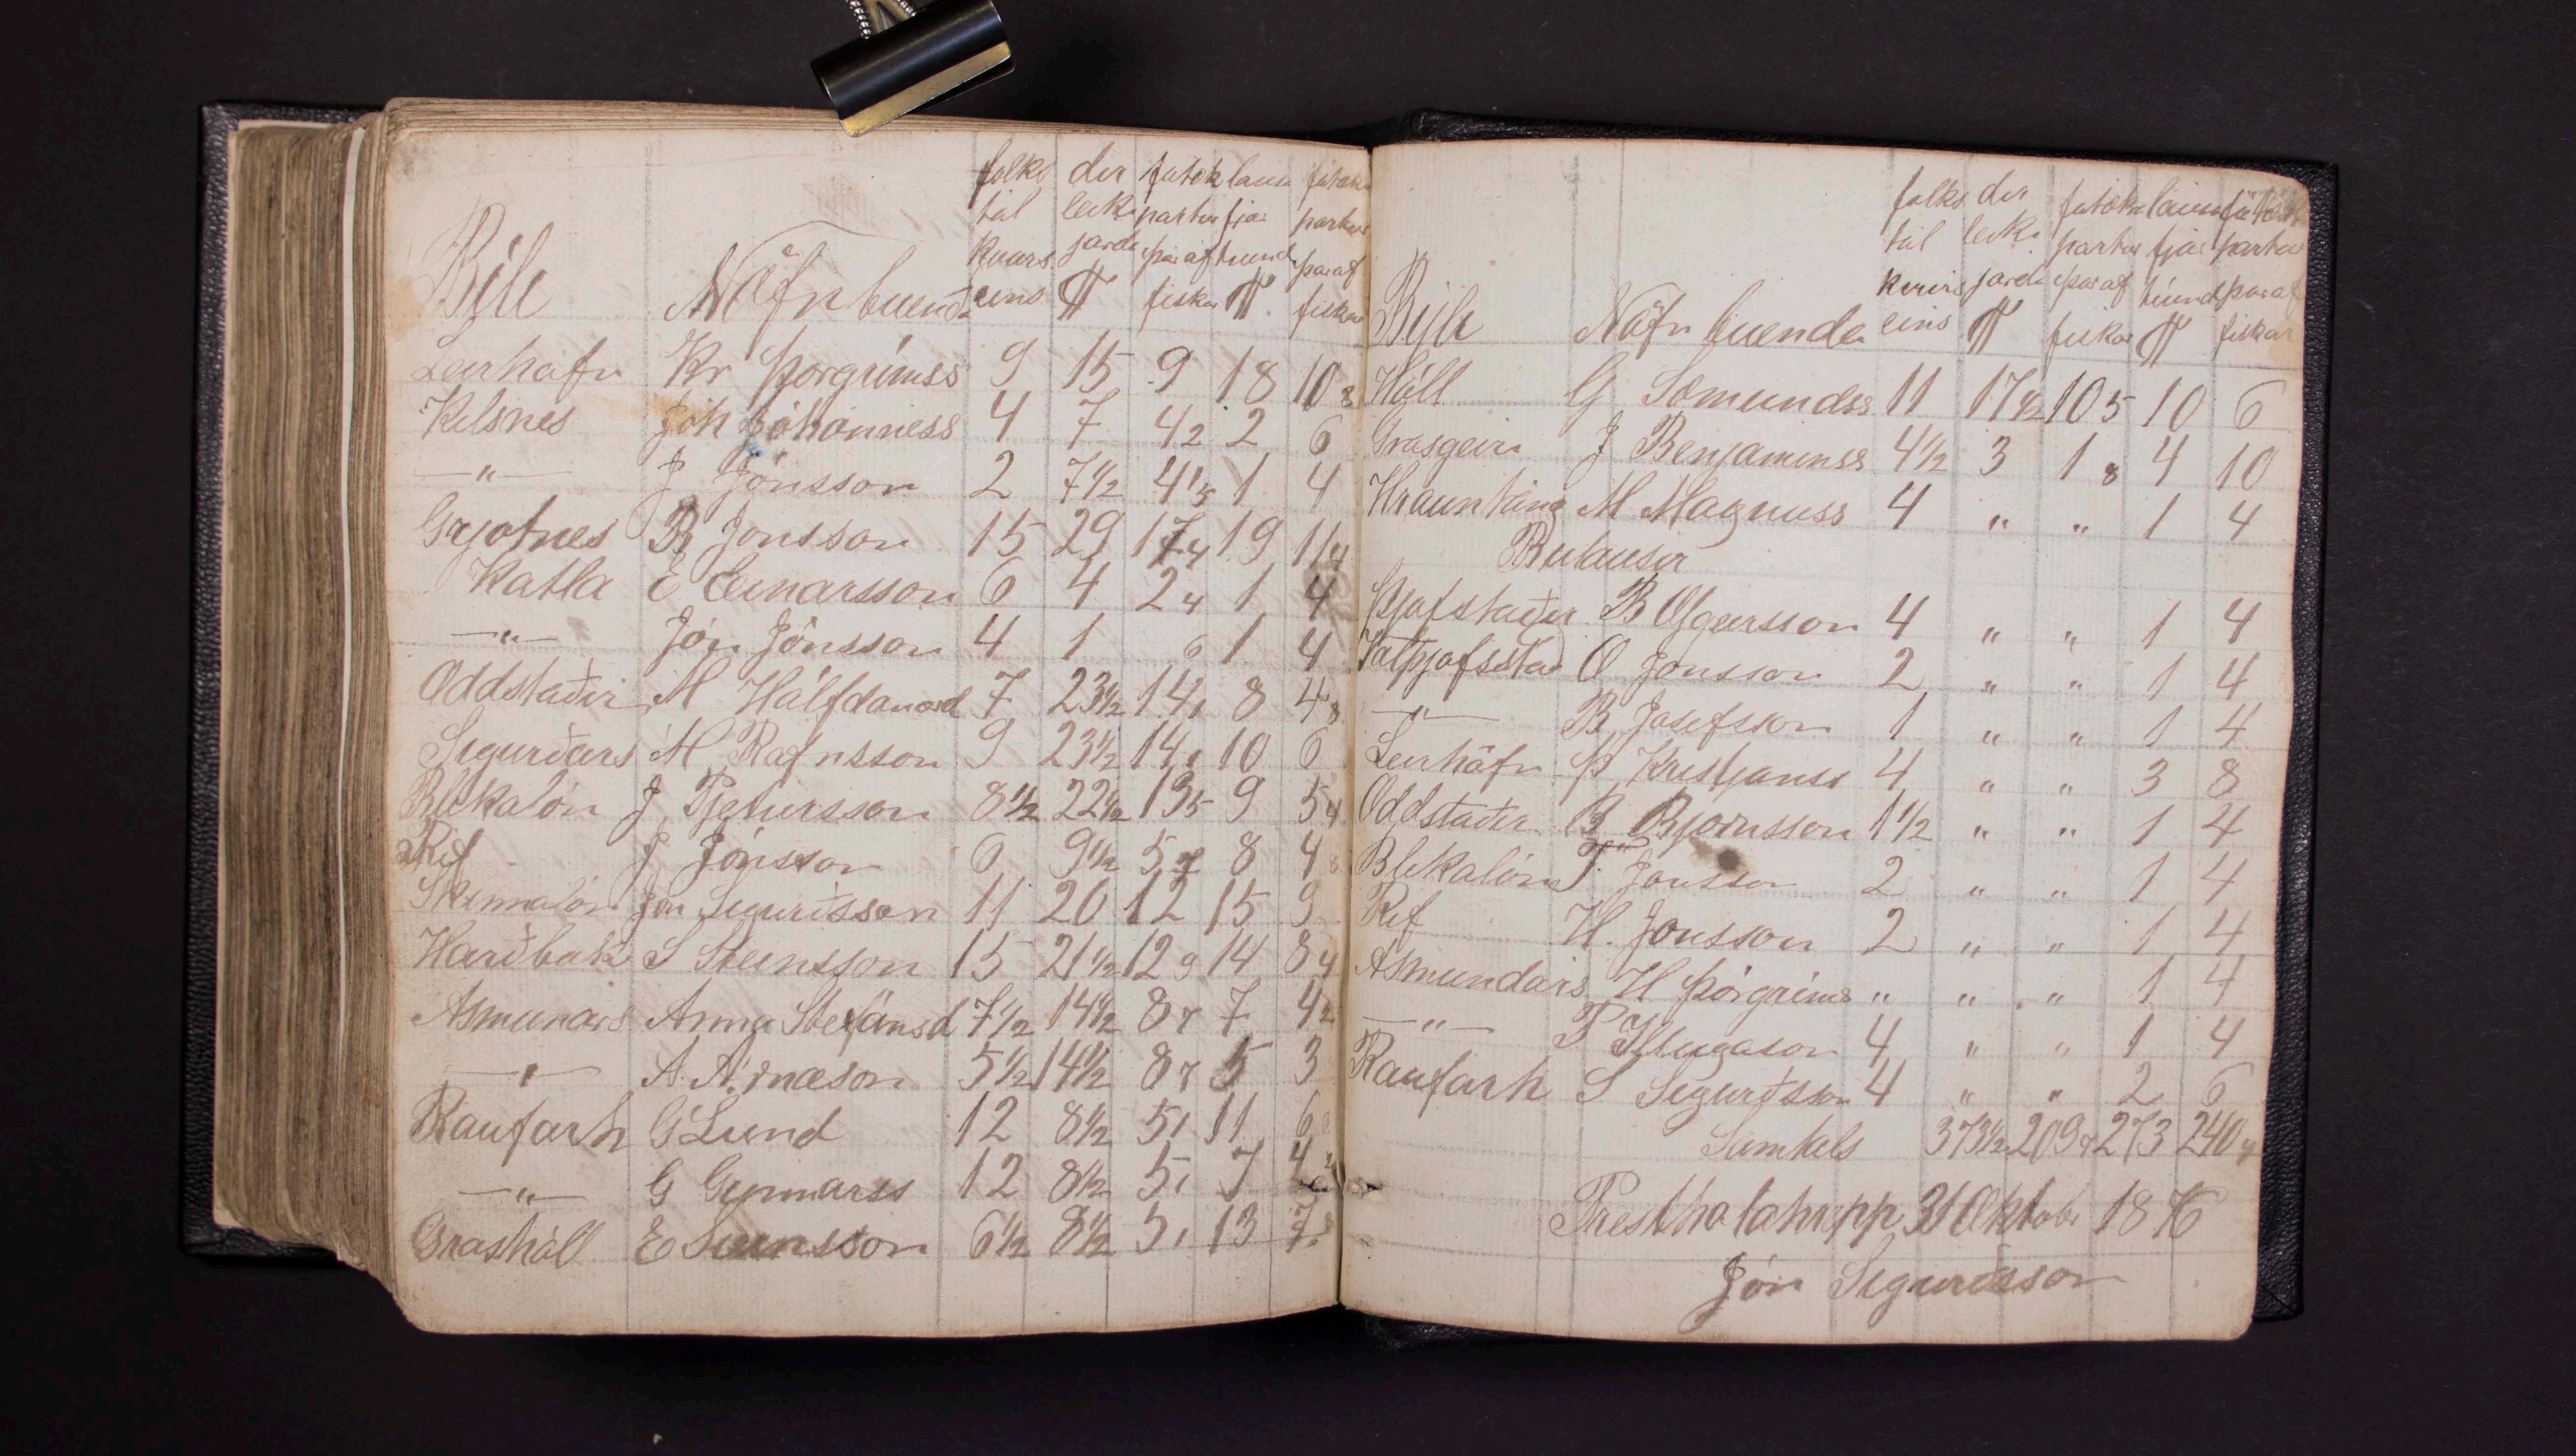 folks dir fatæk lausa fatækra
tal leika partur fjár partur
hvers jarda þar af tíund þar af
Bíli Nöfn búenda eins ₶ fiskar ₶ fiskar
Leirhöfn Kr Þorgrímss 9 15 9 18 10 8
Kilsnes Jóh Jóhanness 4 7 4 2 2 6
—"— J Jónsson 2 7½ 4 5 1 4
Grjotnes B Jonsson 15 29 17 4 19 11 4
Katla E Einarsson 6 4 2 4 1 4
—"— Jón Jónsson 4 1 6 1 4
Oddstaðir M Hálfdanard 7 23½ 14 1 8 4 8
Sigurðars M Rafnsson 9 23½ 14 1 10 6
Blikalón J Pjetursson 8½ 22½ 13 5 9 5 4
Rif J Jónsson 6 9½ 5 7 8 4 8
Skinnalón Jón Sigurðsson 11 20 12 15 9
Harðbak S Steinsson 15 21½ 12 9 14 8 4
Asmundars Anna Stefánsd 7½ 14½ 8 7 7 4 2
—"— A. Arnason 5½ 14½ 8 7 5 3
Raufarh G Lund 12 8½ 5 1 11 6
—"— G Gunnarss 12 8½ 5 1 7 4 2
Grashóll E 6½ 8½ 5 1 13 7 8
folks dir fatækra lausa fatækra
tal leika partur fjár partur
hvers jarda þar af tíund þar af
Bíli Nöfn búenda eins ₶ fiskar ₶ fiskar
Hóll G Sæmundss 11 17½ 10 5 10 6
Grasgeiri J Benjaminss 4½ 3 1 8 4 10
Hrauntáng M Magnuss 4 " " 1 4
Bulausir
Þjofstaðir B Olgeirsson 4 " " 1 4
Valþjofsstað O Jónsson 2 " " 1 4
—"— B Josefsson 1 " " 1 4
Leirhöfn Þ Kristjanss 4 " " 3 8
Oddstaðir B Bjornsson 1½ " " 1 4
Blikalón T Jonsson 2 " " 1 4
Rif H. Jonsson 2 " " 1 4
Ásmundars H Þórgríms " " " 1 4
—"— P Illugason 4 " " 1 4
Raufarh S Sigurðsson 4 " " 2 6
Samtals 373½ 209 7 273 240 4
Presthólahrepp 31 Oktobr 1876
Jón Sigurðsson